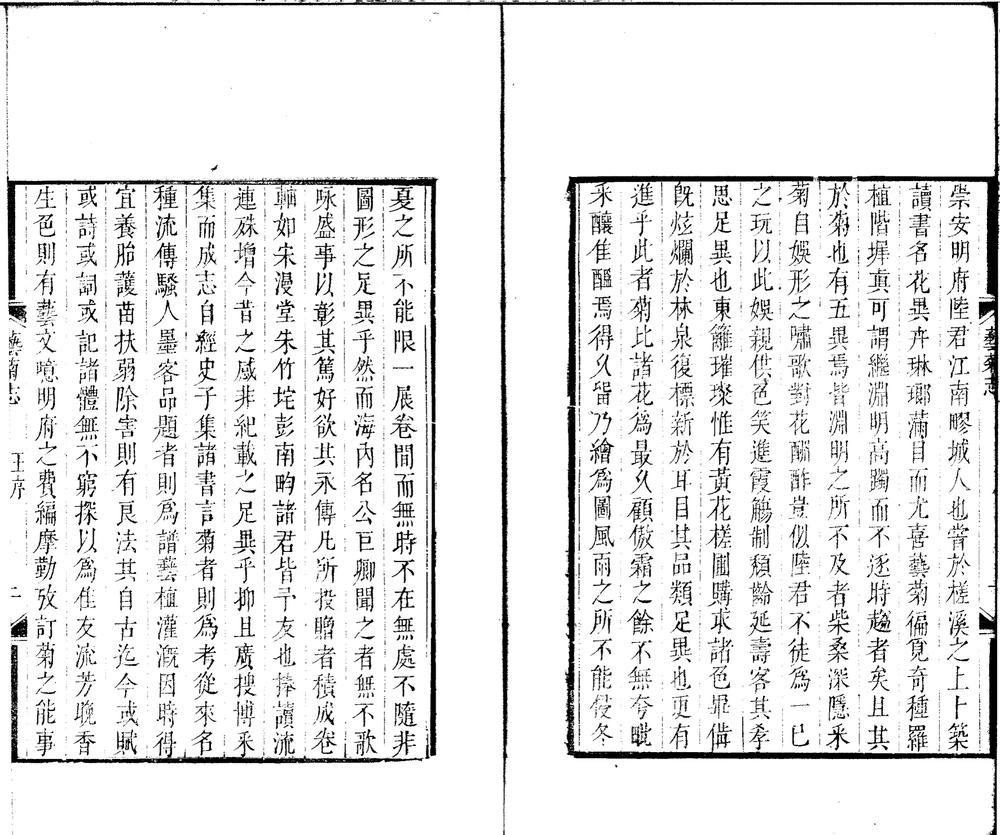 崇安明府陸君江南疁城人也嘗於槎溪之上卜築
讀書名花異卉琳瑯滿目而尤喜藝菊徧覓奇種羅
植階墀真可謂繼淵明高躅而不逐時趨者矣且其
於菊也有五異焉皆淵明之所不及者柴桑深隱采
菊自娛形之嘯歌對花酬酢豈似陸君不徒爲一己
之玩以此娛親供色笑進霞觴制頹齡延壽客其孝
思足異也東籬璀璨惟有黃花槎圃購求諸色畢備
旣炫爛於林泉復標新於耳目其品類足異也更有
進乎此者菊比諸花爲最久顧傲霜之餘不無夸毗
釆釀隹醞焉得久畱乃繪爲圖風雨之所不能侵冬
藝菊志
夏之所不能限一展卷間而無時不在無處不隨非
圖形之足異乎然而海內名公巨卿聞之者無不歌
咏盛事以彰其篤好欲其永傳凡所投贈者積成卷
軸如宋漫堂朱竹垞彭南畇諸君皆予友也捧讀流
連殊增今昔之感非紀載之足異乎抑且廣搜博釆
集而成志自經史子集諸書言菊者則爲考從來名
種流傳騷人墨客品題者則爲譜藝植灌漑因時得
宜養胎護苗扶弱除害則有良法其自古迄今或賦
或詩或詞或記諸體無不窮探以爲隹友流芳晚香
生色則有藝文噫明府之費編摩勤攷訂菊之能事
藝菊志
王序
二